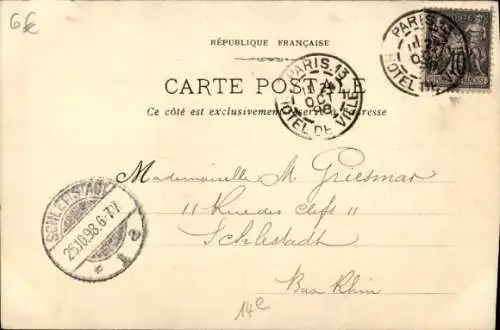 6€
RÉPUBLIQUE FRANÇAISE
CARTE POSTALE
Ce côté est exclusivement réservé à l'adresse
PARIS 13
OCT
98
HOTEL DE VILLE
PARIS
HOTEL DE VILLE
10
Mademoiselle M. Griesmar
11 Rue des clefs 11
Schlestadt
Bas Rhin
SCHLETTSTADT
25.10.98.6-7V.
14e